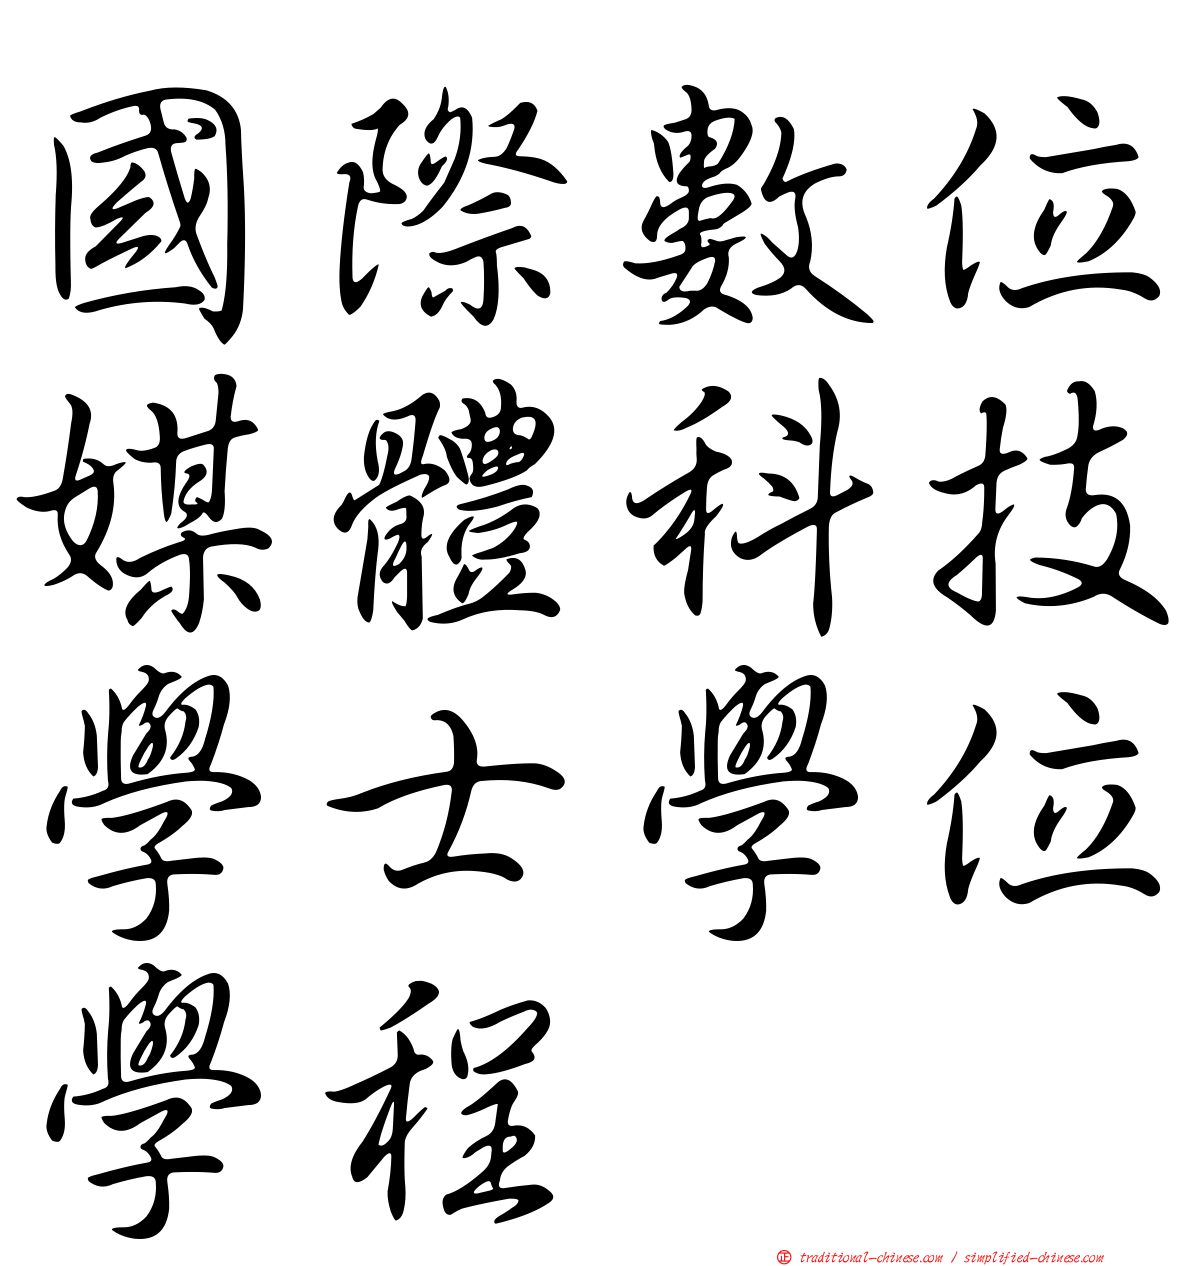 國際數位
媒體科技
學士學位
學程
㊣ traditional-chinese.com / simplified-chinese.com